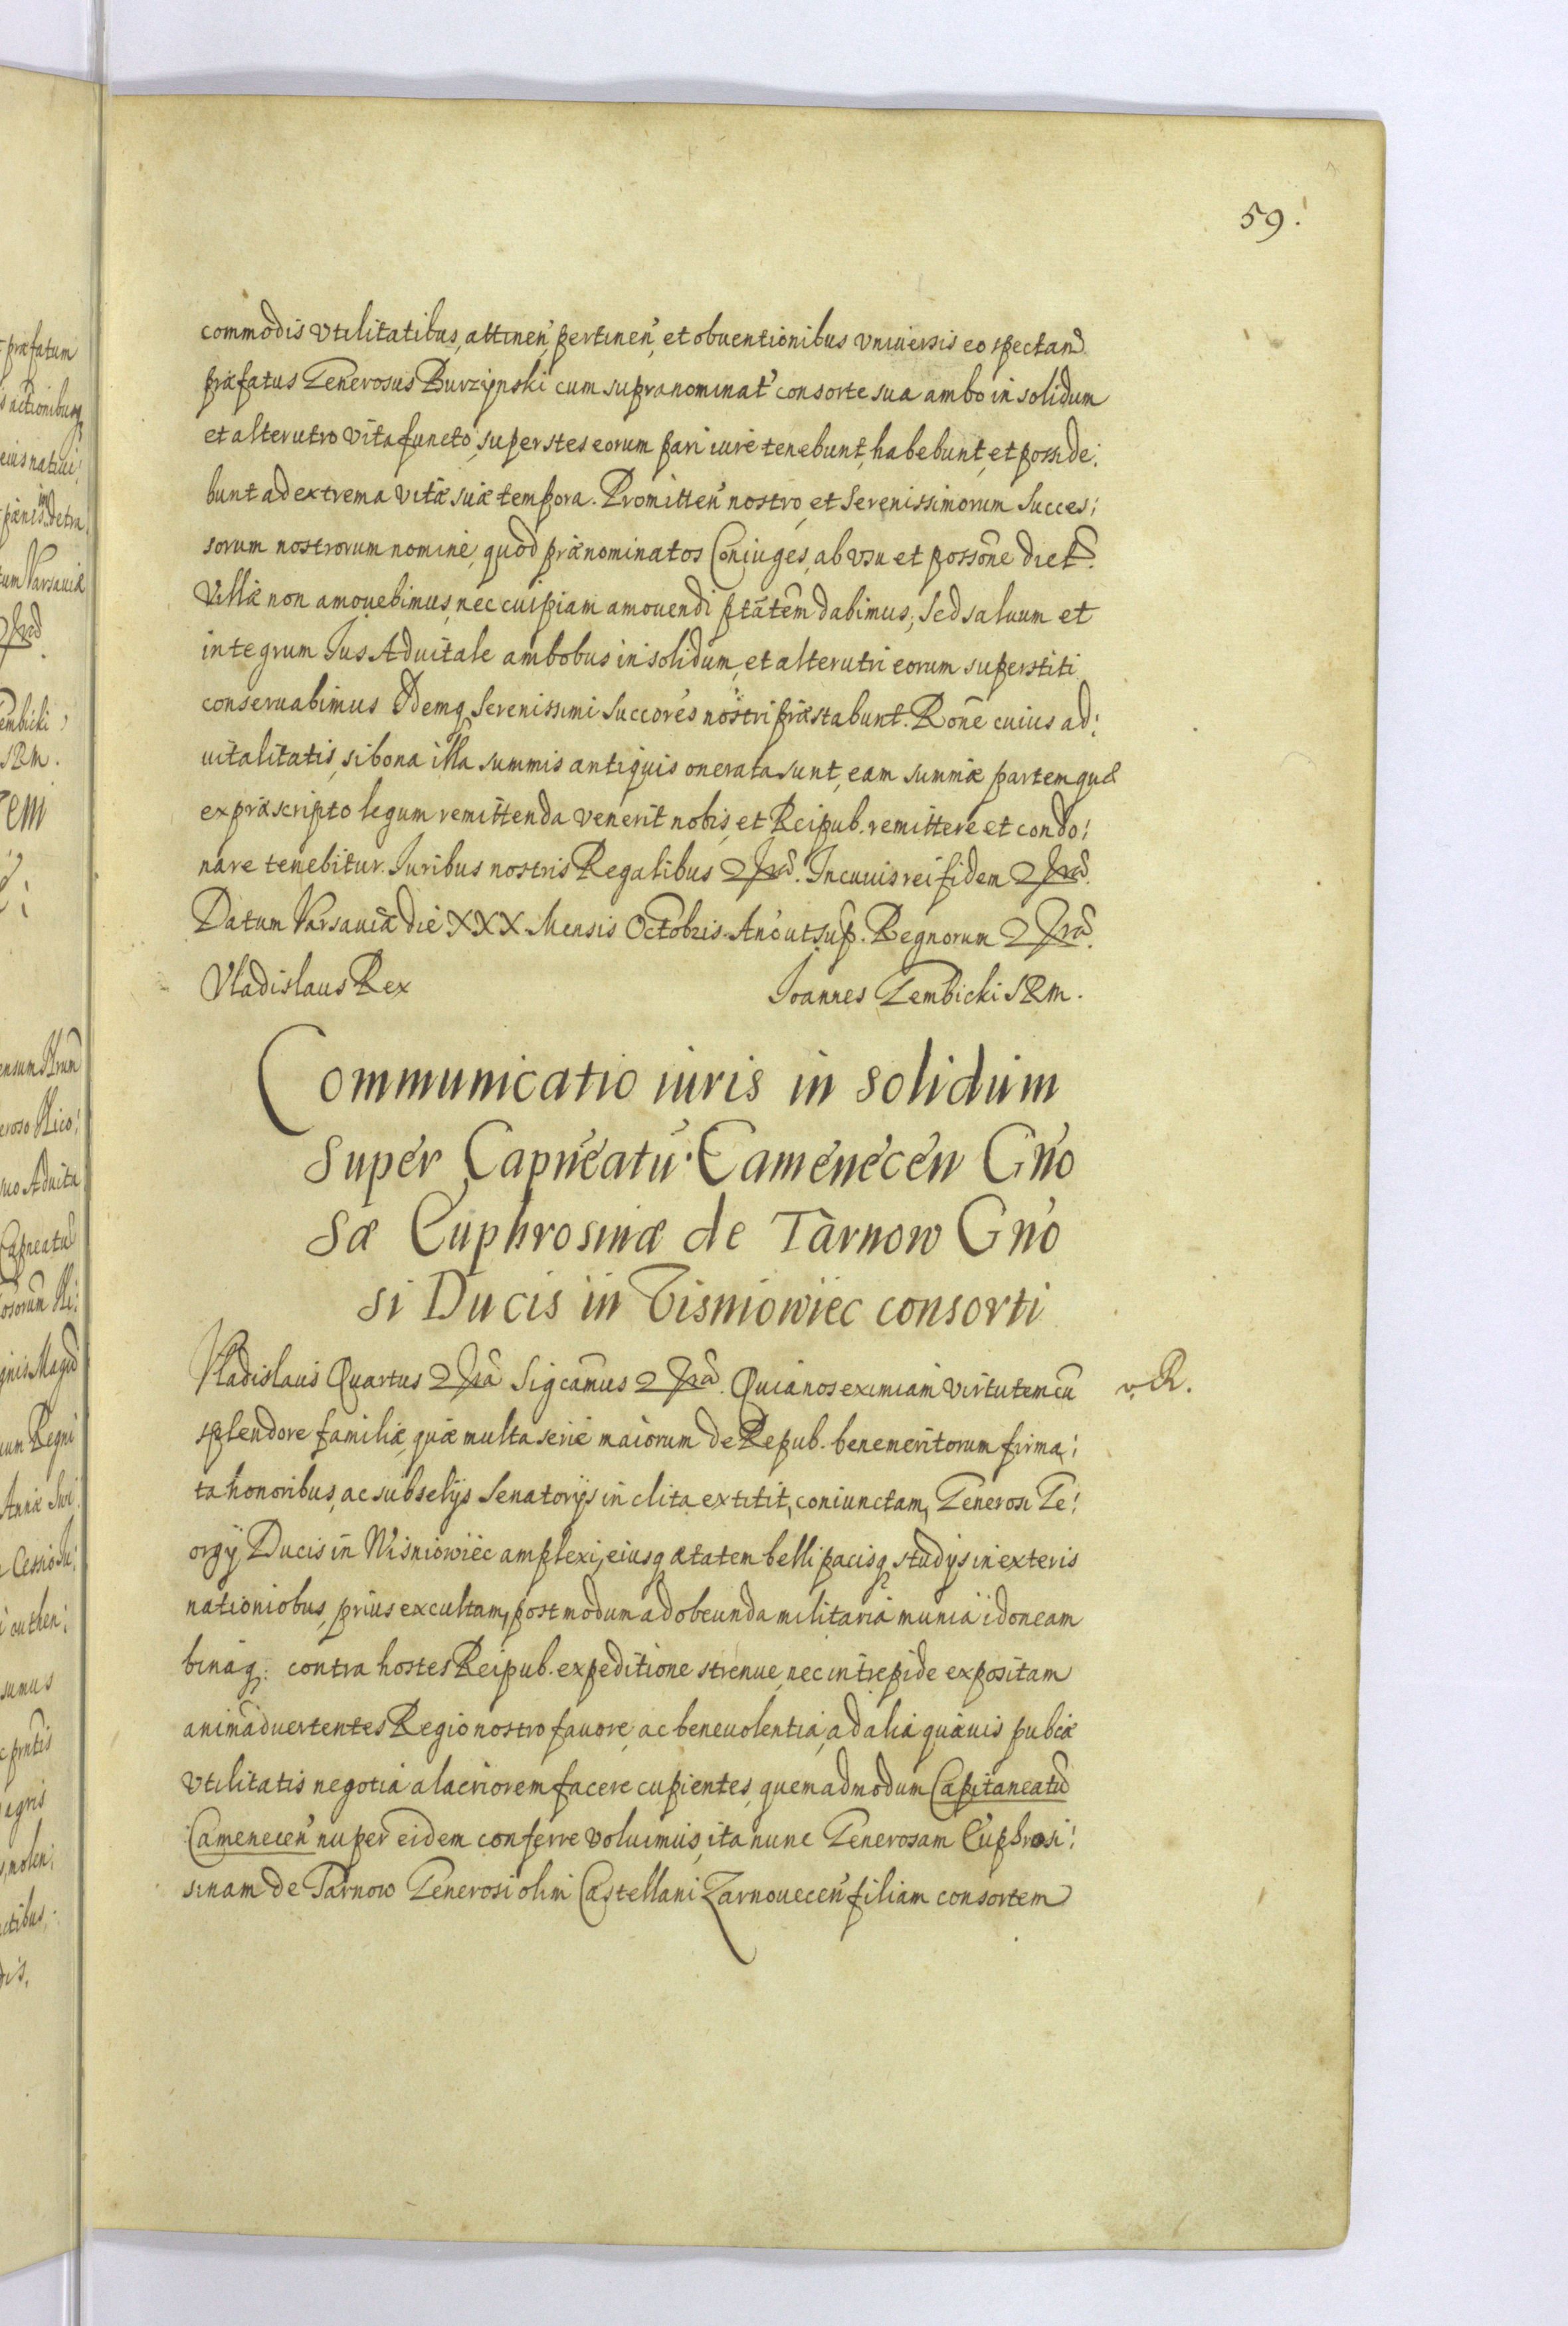 59.
commodis vtilitatibus, attinen̄ pertinen̄, et obuentionibus vniuersis eo spectand
præfatus Generosus Burzynski cum supranominat̄ consorte sua ambo in solidum
et alterutro vita functo, superstes eorum pari iure tenebunt, habebunt, et posside:
bunt ad extrema vitæ suæ tempora. Promitten̄ nostro, et Serenissimorum Succes:
sorum nostrorum nomine, quod prænominatos Coniuges, ab vsu et possōne dict.
Villæ non amouebimus, nec cuipiam amouendi ptātem dabimus; Sed saluum et
integrum Jus Aduitale ambobus in solidum, et alterutri eorum superstiti
conseruabimus Idemq Serenissimi Succores nostri præstabunt. Rōne cuius ad:
uitalitatis, si bona illa summis antiquis onerata sunt, eam summæ partem quæ
ex præscripto legum remittenda venerit nobis, et Reipub. remittere et condo:
nare tenebitur. Juribus nostris Regalibus etc. In cuius rei fidem etc.
Datum Varsauiæ die XXX Mensis Octobris Ano ut sup. Regnorum etc.
Vladislaus Rex Joannes Gembicki SRM.
Communicatio iuris in solidum
super Capneatū Camenecen Gn̄o
sæ Euphrosinæ de Tarnow Gn̄o
si Ducis in Visniowiec consorti
Vladislaus Quartus etc. Sigcāmus etc. Quia nos eximiam virtutem cū
v. R.
splendore familiæ, quæ multa serie maiorum de Repub. benemeritorum firma:
ta honoribus, ac subselijs Senatorijs inclita extitit, coniunctam, Generosi Ge:
orgij Ducis in Wisniowiec amplexi, eiusq ætatem belli pacisq studijs in exteris
nationiobus, prius excultam, postmodum ad obeunda militaria munia idoneam
binaq: contra hostes Reipub. expeditione strenue, nec intrepide expositam
animaduertentes Regio nostro fauore, ac beneuolentia, ad alia quæuis pubcæ
vtilitatis negotia alacriorem facere cupientes, quemadmodum Capitaneatū
Camenecen̄ nuper eidem conferre voluimus, ita nunc Generosam Euphrosi:
sinam de Tarnow Generosi olim Castellani Zarnouecen̄ filiam consortem